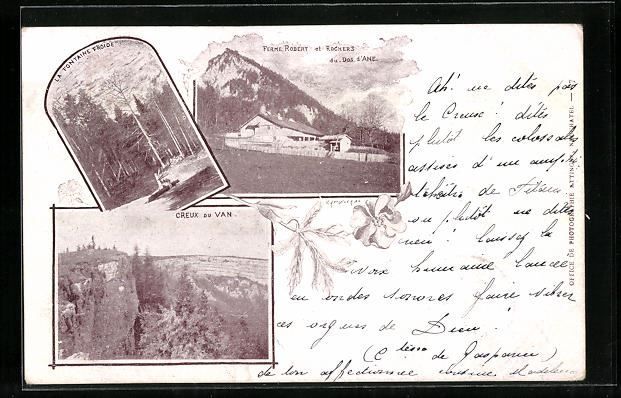 LA FONTAINE FROIDE
FERME ROBERT et ROCHERS
du DOS d'ANE.
CREUX DU VAN
Ah! ne dites pas
le Creux! dites
plutôt les colossales
assises d'un amphi
théâtre de Titans
ou plutôt ne dites
rien! laissez la
voix humaine lancée
en ondes sonores faire vibrer
ces orgues de Dieu!
(Ctesse de Gasparin)
de ton affectionnée cousine Madeleine
OFFICE DE PHOTOGRAPHIE ATTINGER NEUCHATEL